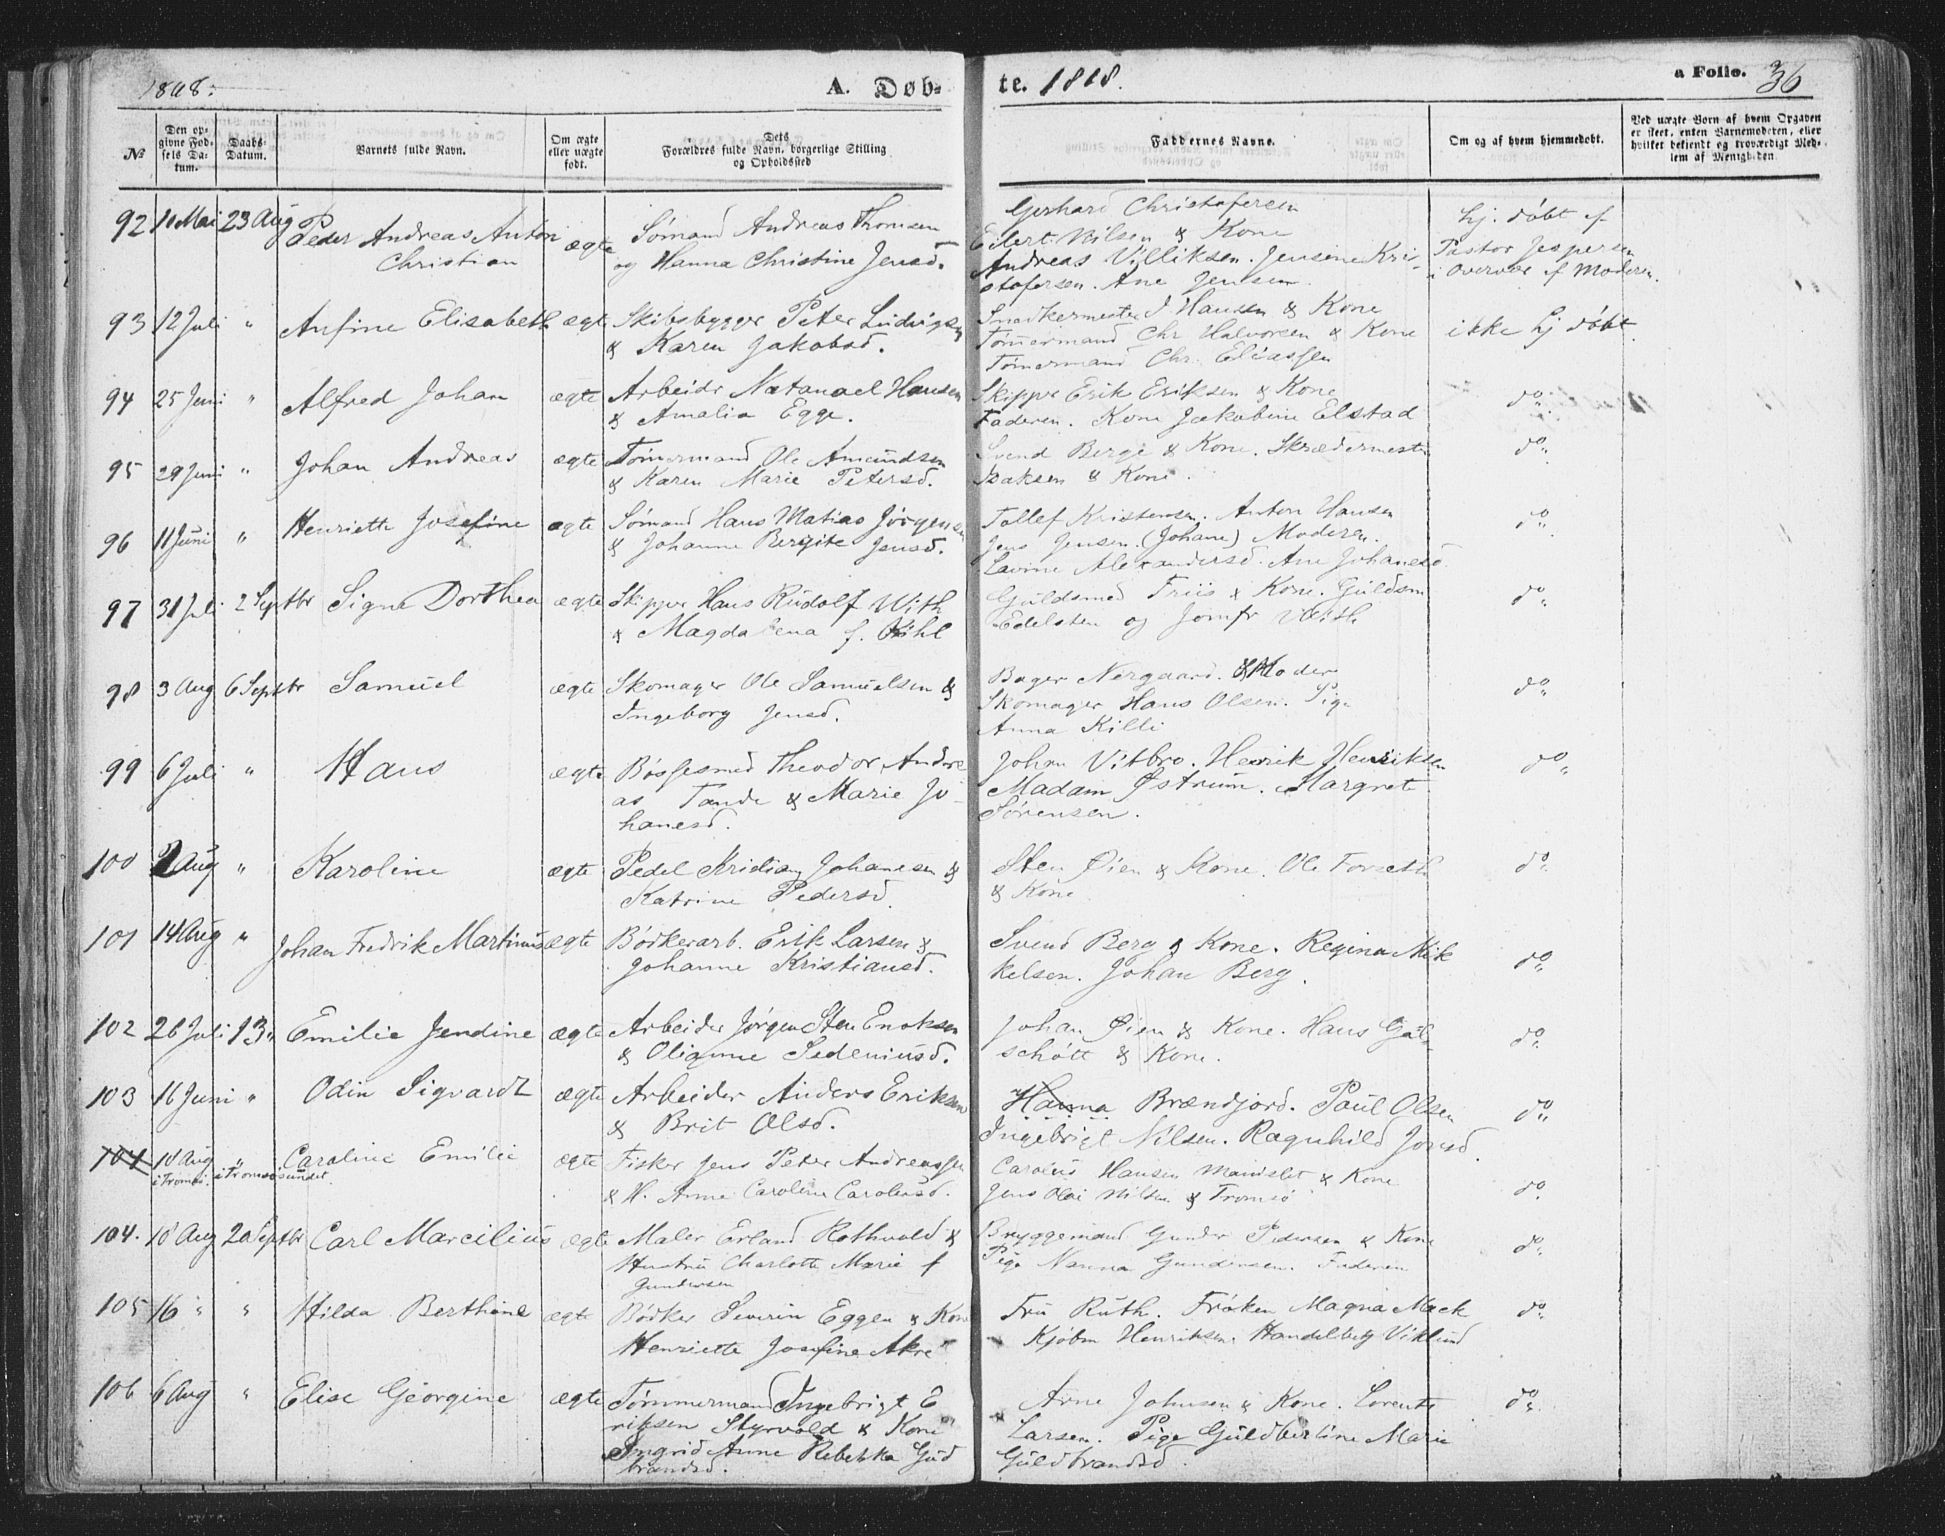 1868.
A. Døb-
te. 1868.
a Folio. 36
№
Den opgivne Fødsels Datum.
Daabs-Datum.
Barnets fulde Navn.
Om ægte eller uægte født.
Dets Forældres fulde Navn, borgerlige Stilling og Opholdssted
Faddernes Navne.
Om og af hvem hjemmedøbt.
Ved uægte Børn af hvem Opgaven er skeet, enten Barnemoderen, eller hvilket bekjendt og troværdigt Medlem af Menigheden.
92 10 Mai 23 Aug Peder Andreas Anton
Christian
ægte
Sømand Andreas Thomsen
og Hanna Christine Jensd.
Gerhard Christofersen
Eilert Nilsen & Kone
Andreas Villiksen. Jensine Kri-
stofersen. Ane Jensen.
hj. døbt af
Pastor Jespersen
i Overvær af Moderen.
93 12 Juli " Anfine Elisabeth ægte
Skibsbygger Peter Ludvigsen
& Karen Jakobsd.
Snedkermester J Hansen & Kone
Tømmermand Chr Halvorsen & Kone
Tømermand Chr. Eliassen
ikke hj døbt.
94 25 Juni " Alfred Johan ægte
Arbeider Natanael Hansen
& Amalia Egge.
Skipper Erik Eriksen & Kone
Faderen. Kone Jakobine Elstad
do.
95 29 Juni " Johan Andreas ægte
Tømermand Ole Amundsen
& Karen Marie Petersd.
Svend Berge & Kone. Skrædermester
Isaksen & Kone.
do.
96 11 Juni " Henriette Josefine ægte
Sømand Hans Matias Jørgensen
& Johanne Bergite Jensd.
Tollef Kristensen. Anton Hansen
Jens Jensen (Johane) Moderen.
Lavine Alexandersd. Ane Johanesd
do.
97 31 Juli 2 Septbr Signe Dorthea ægte
Skipper Hans Rudolf With
& Magdalena f. Kihl
Guldsmed Friis & Kone. Guldsm
Edelsten og Jomfr With
do.
98 3 Aug 6 Septbr Samuel ægte
Skomager Ole Samuelsen &
Ingeborg Jensd.
Bager Nergaard. & Moder
Skomager Hans Olsen. Pige
Anna Killi
do.
99 6 Juli " Hans ægte
Bøssesmed Theodor Andre
as Tande & Marie Jo-
hanesd.
Johan Vitbro. Henrik Henriksen
Madam Østrum. Margret
Sørensen.
do.
100 2 Aug " Karoline ægte
Pedel Kristian Johanesen &
Katrine Pedersd.
Sten Øien & Kone. Ole Forseth
& Kone
do.
101 14 Aug " Johan Fredrik Martinus ægte
Bødkerarb. Erik Larsen &
Johanne Kristiansd.
Svend Berg & Kone. Regina Mik
kelsen. Johan Berg.
do.
102 26 Juli 13 " Emilie Jendine ægte
Arbeider Jørgen Sten Enoksen
& Oligune Sedeniusd.
Johan Øien & Kone. Hans Gul-
schøtt & Kone.
do.
103 16 Juni " Odin Sigvardt ægte
Arbeider Anders Eriksen
& Brit Olsd.
Hanna Brændjord. Paul Olsen
Ingebrigt Nilsen. Ragnhild Jonsd.
do.
104 10 Aug " Caroline Emilie ægte
i Tromsø. i Tromsøsundet.
Fisker Jens Peter Andreassen
& H. Anne Caroline Carolusd.
Carolus Hansen Mandslet & Kone
Jens Olai Nilsen & Tromsø
do.
104. 10 Aug 20 Septbr Carl Marcilius ægte
Maler Erland Rothvold &
Hustru Charlotte Marie f
Gundersen
Bryggemand Gunder Pedersen & Kone
Pige Nanna Gundersen. Faderen
do.
105 16 " " Hilda Berthine ægte
Bødker Severin Eggen & Kone
Henriette Josefine Akre
Fru Ruth. Frøken Magna Mack
Kjøbm Henriksen. Handelsbetj Viklund
do.
106 6 Aug " Elise Georgine ægte
Tømmermand Ingebrigt E
riksen Styrvold & Kone
Ingrid Anne Rebekka Gud
brandsd.
Arne Johnsen & Kone. Lorents
Larsen. Pige Guldbertine Marie
Guldbrandsd.
do.